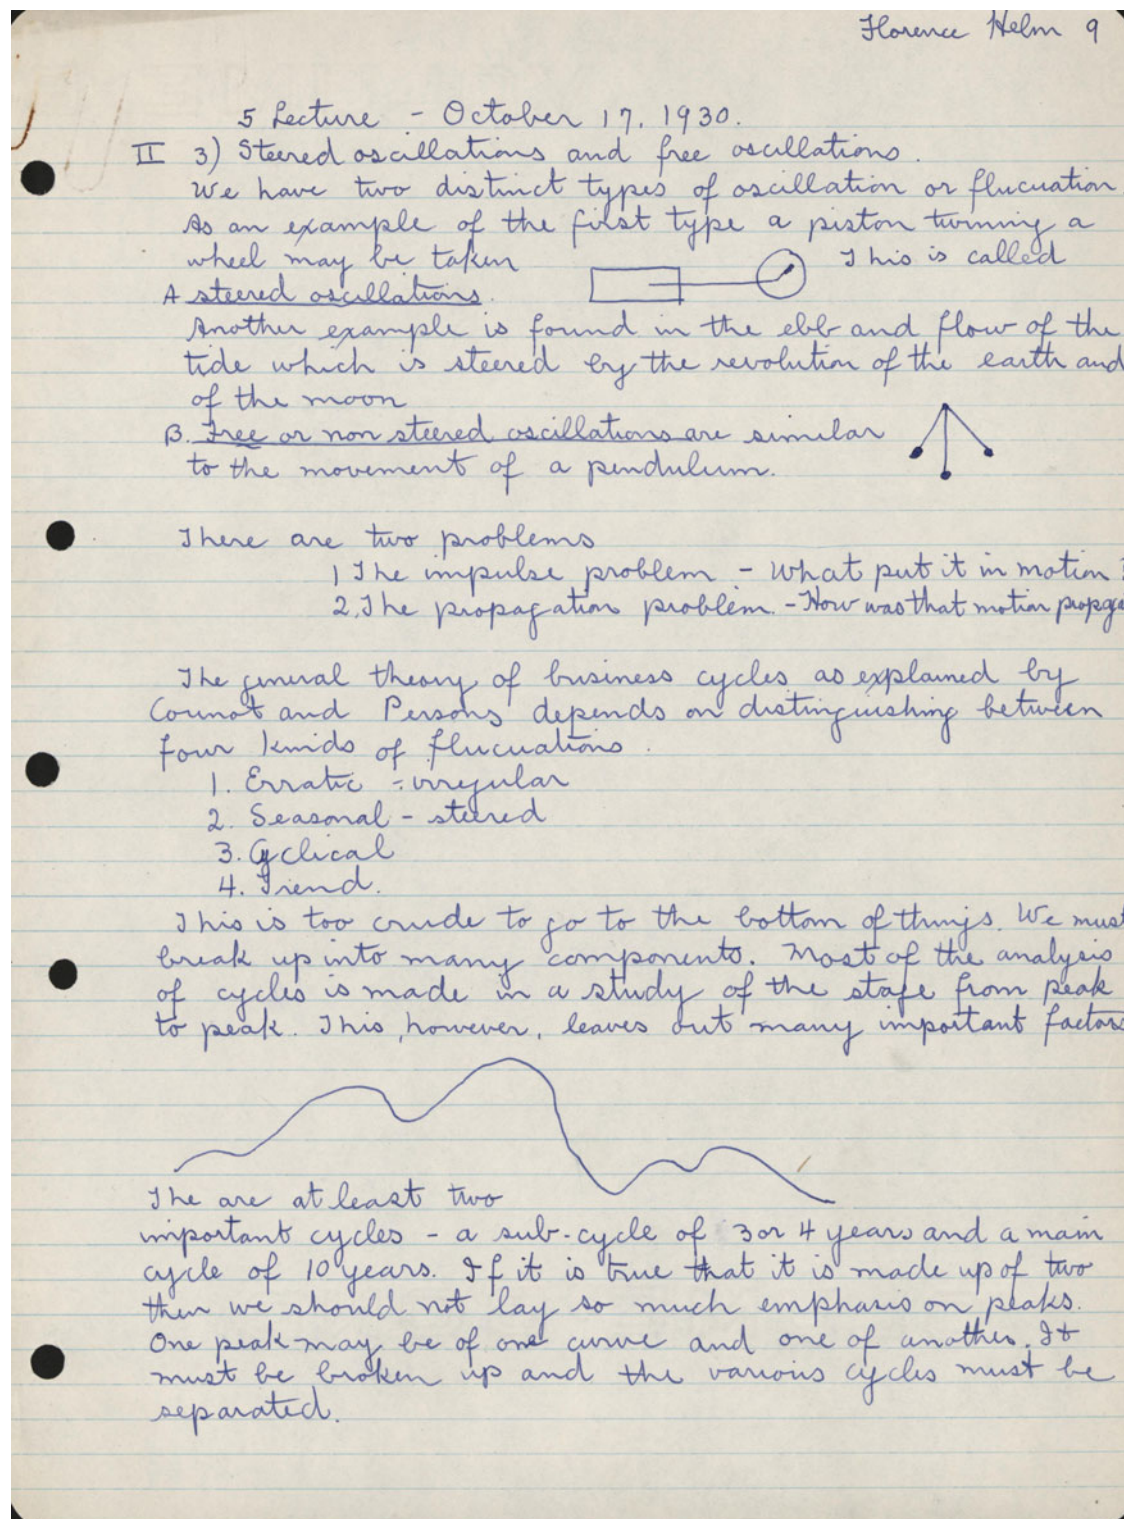 Florence Helm 9
5 Lecture - October 17, 1930.
II 3) Steered oscillations and free oscillations.
We have two distinct types of oscillation or flucuation
As an example of the first type a piston turning a
wheel may be taken This is called
A steered oscillations.
Another example is found in the ebb and flow of the
tide which is steered by the revolution of the earth and
of the moon
B. Free or non steered oscillations are similar
to the movement of a pendulum.
There are two problems
1 The impulse problem - What put it in motion?
2. The propagation problem. - How was that motion propga
The general theory of business cycles as explained by
Cournot and Persons depends on distinguishing between
four kinds of flucuations.
1. Erratic - irregular
2. Seasonal - steered
3. Cyclical
4. Trend.
This is too crude to go to the bottom of things. We must
break up into many components. Most of the analysis
of cycles is made in a study of the stage from peak
to peak. This, however, leaves out many important factors
The are at least two
important cycles - a sub-cycle of 3 or 4 years and a main
cycle of 10 years. If it is true that it is made up of two
then we should not lay so much emphasis on peaks.
One peak may be of one curve and one of another. It
must be broken up and the various cycles must be
separated.